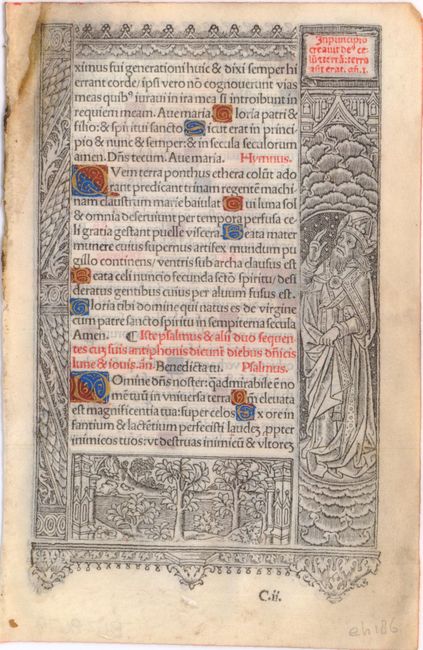 In principio
creavit deꝰ ce
lū ⁊ terrā: terra
aūt erat. Gñ. i.
ximus fui generationi huic & dixi semper hi
errant corde/ ipsi vero nō cognouerunt vias
meas quibꝰ iuraui in ira mea si introibunt in
requiem meam. Aue maria. Gloria patri &
filio: & spiritui sancto Sicut erat in princi
pio & nunc & semper: & in secula seculorum
amen. Dñs tecum. Aue maria. Hymnus.
QVem terra ponthus ethera colūt ado
rant predicant trinam regentē machi
nam claustrum marie baiulat Cui luna sol
& omnia deseruiunt per tempora perfusa ce
li gratia gestant puelle viscera. Beata mater
munere cuius supernus artifex mundum pu
gillo continens/ ventris sub archa clausus est
Beata celi nuncio fecunda sctō spiritu/ desi
deratus gentibus cuius per aluum fusus est.
Gloria tibi domine qui natus es de virgine
cum patre sancto spiritu in sempiterna secula
Amen. ¶ Iste psalmus & alii duo sequen
tes cuz suis antiphonis dicunt diebus dñicis
lune & iouis. añ. Benedicta tu. Psalmus.
DOmine dñs noster: q̃ admirabile ē no
mē tuū in vniuersa terra Qm̄ eleuata
est magnificentia tua: super celos Ex ore in
fantium & lactētium perfecisti laudez ꝓpter
inimicos tuos: vt destruas inimicū & vltorez
C.ii.
eh186